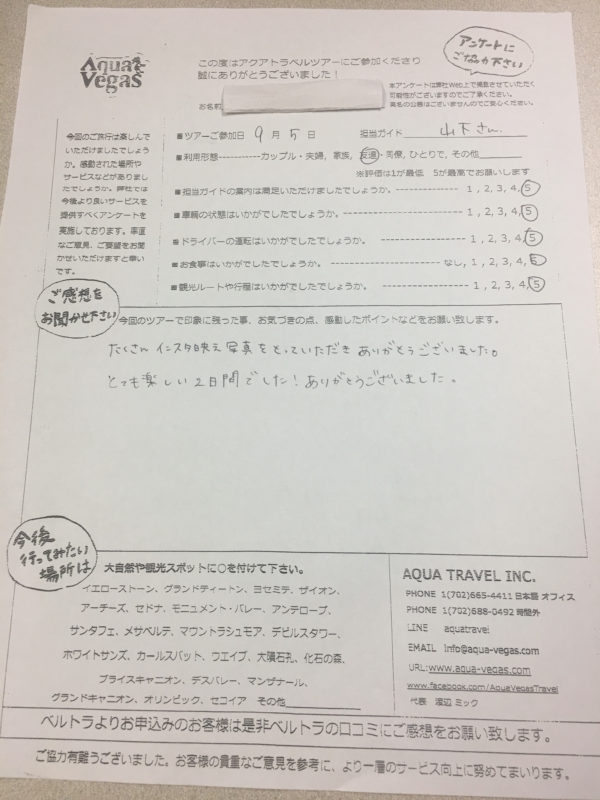 Aqua
Vegas
この度はアクアトラベルツアーにご参加くださり
誠にありがとうございました！
アンケートに
ご協力下さい
本アンケートは弊社Web上で掲載させていただく
可能性がございますのでご了承ください。
実名の公表はございませんのでご安心ください。
お名前
今回のご旅行は楽しんで
いただけましたでしょう
か。感動された場所や
サービスなどがありまし
たでしょうか。弊社では
今後より良いサービスを
提供すべくアンケートを
実施しております。率直
なご意見、ご要望をお聞
かせいただけますと幸い
です。
■ツアーご参加日 9月 5日 担当ガイド 山下さん
■利用形態-----------カップル・夫婦, 家族, 友達・同僚, ひとりで, その他
※評価は1が最低 5が最高でお願いします
■担当ガイドの案内は満足いただけましたでしょうか。 ---------------- 1 , 2, 3, 4, 5
■車輌の状態はいかがでしたでしょうか。 ---------------- 1 , 2, 3, 4, 5
■ドライバーの運転はいかがでしたでしょうか。 ---------------- 1 , 2, 3, 4, 5
■お食事はいかがでしたでしょうか。 ---------------- なし, 1 , 2, 3, 4, 5
■観光ルートや行程はいかがでしょうか。 ---------------- 1 , 2, 3, 4, 5
ご感想を
お聞かせ下さい
今回のツアーで印象に残った事、お気づきの点、感動したポイントなどをお願い致します。
たくさん インスタ映え 写真をとっていただき ありがとうございました。
とても楽しい2日間でした！ありがとうございました。
今後
行ってみたい
場所は
大自然や観光スポットに○を付けて下さい。
イエローストーン、グランドティートン、ヨセミテ、ザイオン、
アーチーズ、セドナ、モニュメント・バレー、アンテロープ、
サンタフェ、メサベルテ、マウントラシュモア、デビルスタワー、
ホワイトサンズ、カールスバット、ウエイブ、大隕石孔、化石の森、
ブライスキャニオン、デスバレー、マンザナール、
グランドキャニオン、オリンピック、セコイア その他
AQUA TRAVEL INC.
PHONE 1(702)665-4411 日本語 オフィス
PHONE 1(702)688-0492 時間外
LINE aquatravel
EMAIL info@aqua-vegas.com
URL:www.aqua-vegas.com
www.facebook.com/AquaVegasTravel
代表 渡辺 ミック
ベルトラよりお申込みのお客様は是非ベルトラの口コミにご感想をお願い致します。
ご協力有難うございました。お客様の貴重なご意見を参考に、より一層のサービス向上に努めてまいります。